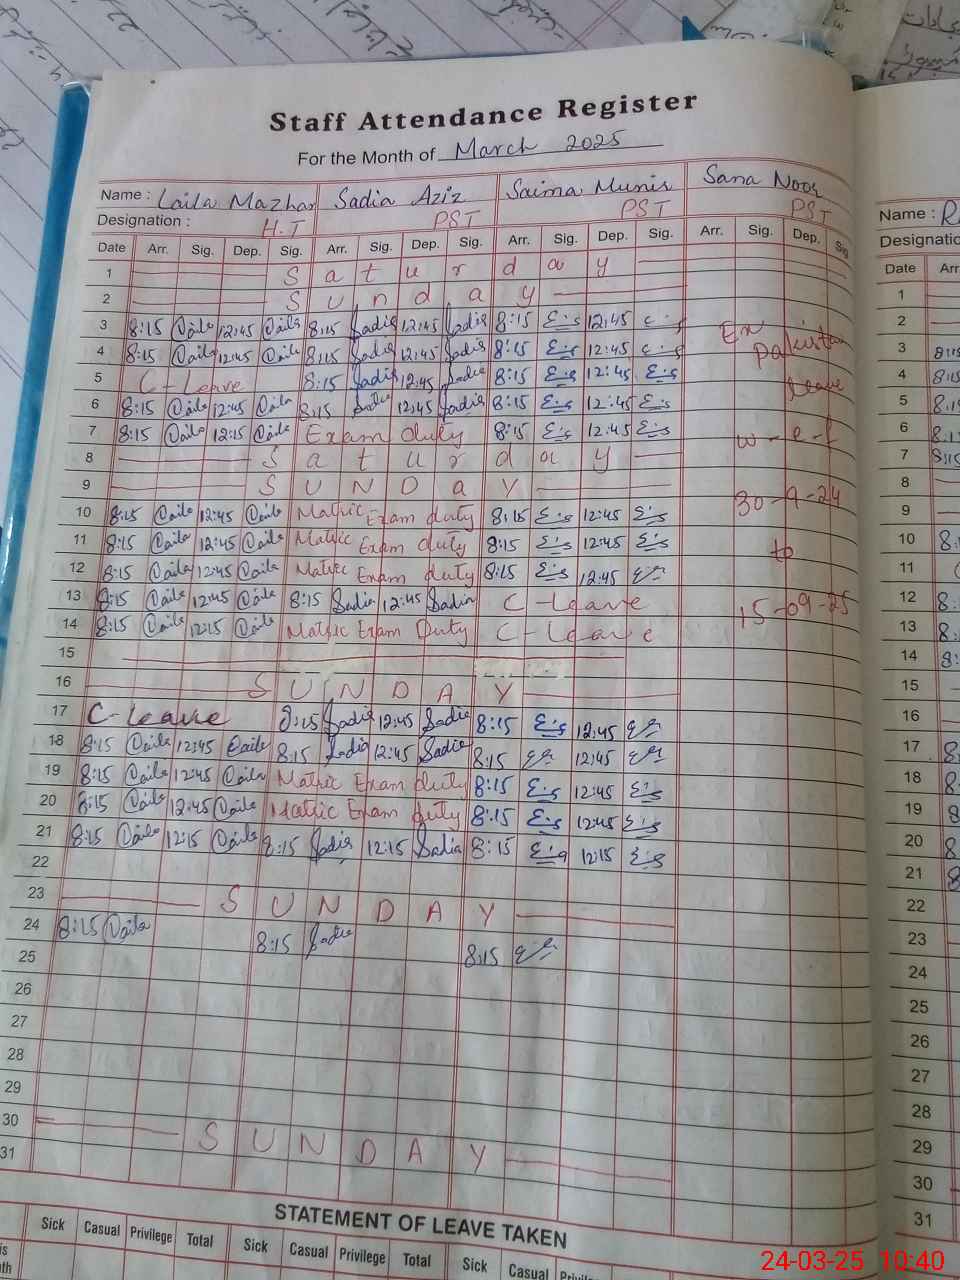 Staff Attendance Register
For the Month of March 2025
Name : Laila Mazhar Sadia Aziz Saima Munir Sana Noor
Designation : H.T PST PST PST
Date Arr. Sig. Dep. Sig. Arr. Sig. Dep. Sig. Arr. Sig. Dep. Sig. Arr. Sig. Dep. Sig
1 S a t u r d a y
2 S U n d a y
3 8:15 Laila 12:45 Laila 8:15 Sadia 12:45 Sadia 8:15 12:45 Ex
4 8:15 Laila 12:45 Laila 8:15 Sadia 12:45 Sadia 8:15 12:45 Pakistan
5 C-Leave 8:15 Sadia 12:45 Sadia 8:15 12:45 Leave
6 8:15 Laila 12:45 Laila 8:15 Sadia 12:45 Sadia 8:15 12:45
7 8:15 Laila 12:15 Laila Exam duty 8:15 12:45 w-e-f
8 S a t u r d a y
9 S U N D a y 30-9-24
10 8:15 Laila 12:45 Laila Matric Exam duty 8:15 12:45
11 8:15 Laila 12:45 Laila Matric Exam duty 8:15 12:45 to
12 8:15 Laila 12:45 Laila Matric Exam duty 8:15 12:45
13 8:15 Laila 12:45 Laila 8:15 Sadia 12:45 Sadia C-Leave 15-09-25
14 8:15 Laila 12:15 Laila Matric Exam Duty C-Leave
15
16 S U N D A Y
17 C-Leave 8:15 Sadia 12:45 Sadia 8:15 12:45
18 8:15 Laila 12:45 Laila 8:15 Sadia 12:45 Sadia 8:15 12:45
19 8:15 Laila 12:45 Laila Matric Exam duty 8:15 12:45
20 8:15 Laila 12:45 Laila Matric Exam duty 8:15 12:45
21 8:15 Laila 12:15 Laila 8:15 Sadia 12:15 Sadia 8:15 12:15
22
23 S U N D A Y
24 8:15 Laila 8:15 Sadia 8:15
25
26
27
28
29
30 S U N D A Y
31
STATEMENT OF LEAVE TAKEN
Sick Casual Privilege Total Sick Casual Privilege Total Sick Casual
Name :
Designatio
Date Arr
1
2
3 8:15
4 8:15
5 8:15
6 8:15
7 8:15
8
9
10 8:
11
12 8:
13 8:
14 8:
15
16
17 8
18 8
19 8
20 8
21 8
22
23
24
25
26
27
28
29
30
31
24-03-25 10:40